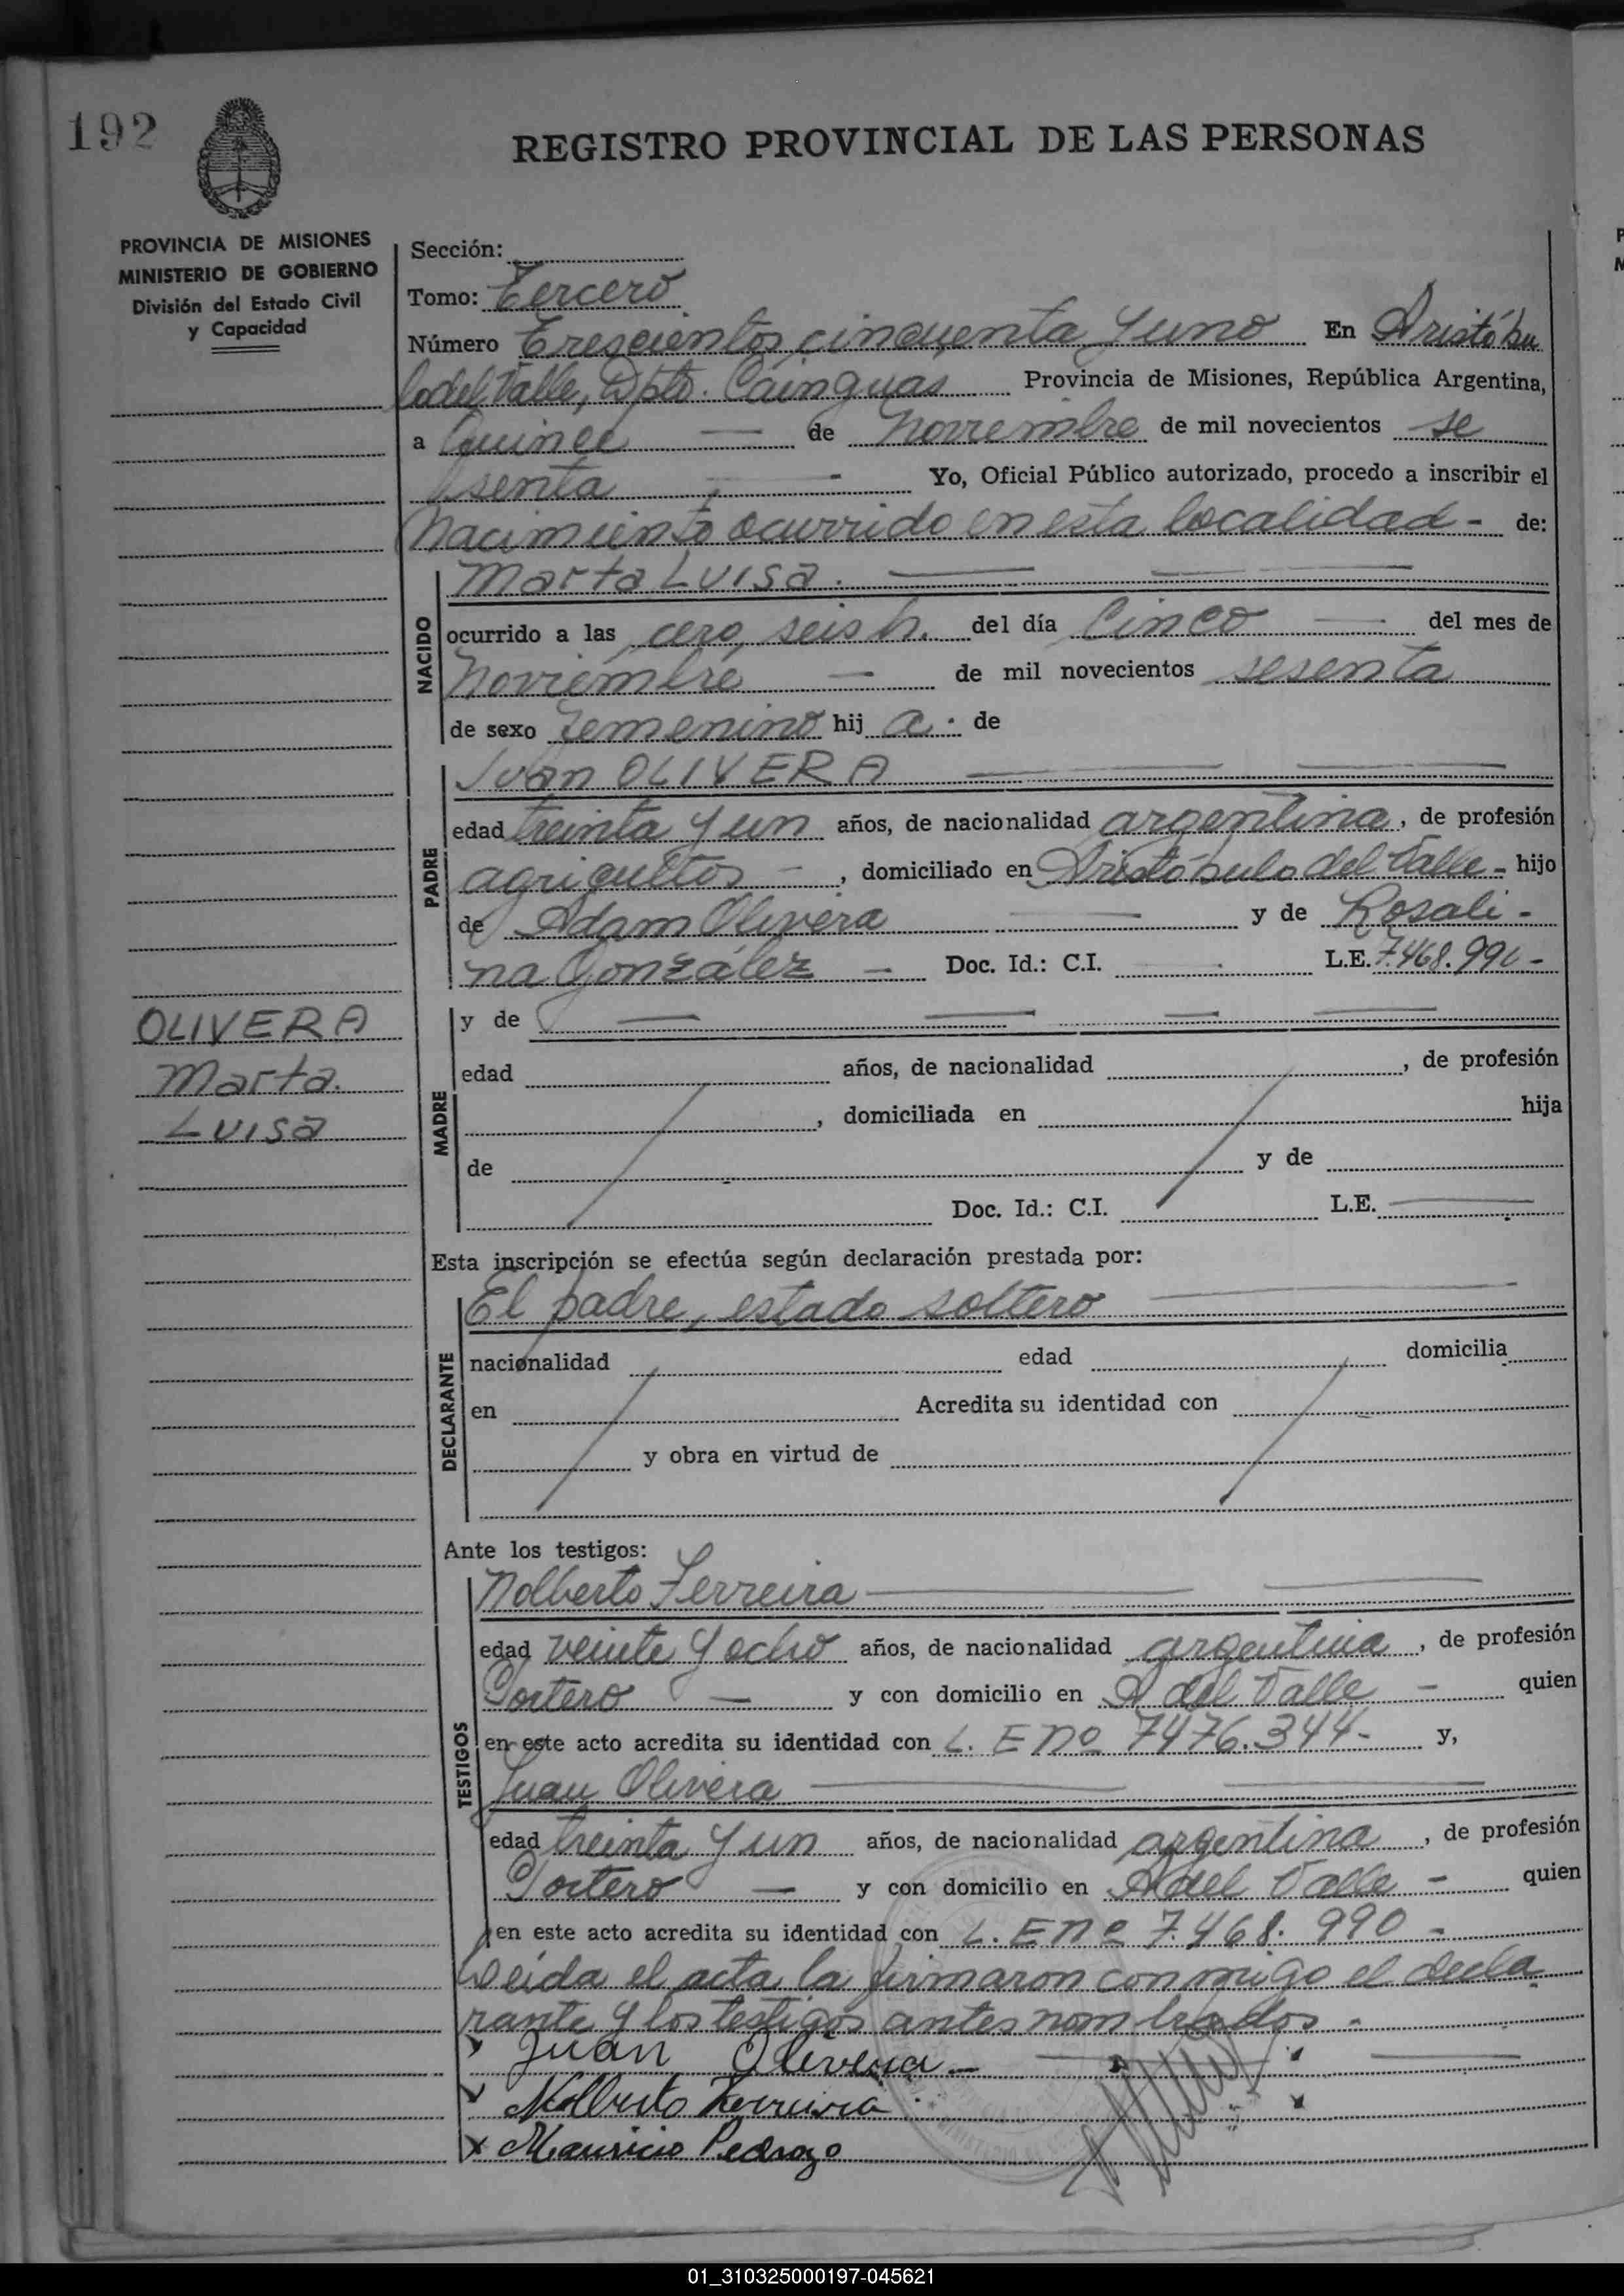 192
REGISTRO PROVINCIAL DE LAS PERSONAS
PROVINCIA DE MISIONES
MINISTERIO DE GOBIERNO
División del Estado Civil
y Capacidad
Sección:
Tomo: Tercero
Número Trescientos cincuenta y uno En Aristóbu
lo del Valle, Dpto. Cainguas Provincia de Misiones, República Argentina,
a Quince — de Noviembre de mil novecientos se
senta — Yo, Oficial Público autorizado, procedo a inscribir el
Nacimiento ocurrido en esta localidad - de:
NACIDO
Marta Luisa. — —
ocurrido a las cero, seis h. del día Cinco — del mes de
Noviembre — de mil novecientos sesenta
de sexo femenino hij a. de
PADRE
Juan OLIVERA — —
edad treinta y un años, de nacionalidad argentina, de profesión
agricultor -, domiciliado en Aristóbulo del Valle - hijo
de Adam Olivera — y de Rosali-
na González — Doc. Id.: C.I. L.E. 7.468.990 -
OLIVERA
Marta.
Luisa
MADRE
y de — — — —
edad años, de nacionalidad , de profesión
, domiciliada en hija
de y de
Doc. Id.: C.I. L.E. —
Esta inscripción se efectúa según declaración prestada por:
DECLARANTE
El padre, estado soltero —
nacionalidad edad domicilia
en Acredita su identidad con
y obra en virtud de
Ante los testigos:
TESTIGOS
Nolberto Ferreira — —
edad veinte y ocho años, de nacionalidad argentina, de profesión
Portero — y con domicilio en A del Valle - quien
en este acto acredita su identidad con L. E nº 7476.344- y,
Juan Olivera — —
edad treinta y un años, de nacionalidad argentina, de profesión
Portero — y con domicilio en A del Valle - quien
en este acto acredita su identidad con L. E nº 7.468.990 -
Leída el acta la firmaron conmigo el decla
rante y los testigos antes nombrados.
Juan Olivera. —
Nolberto Ferreira
x Mauricio Pedrozo
01_310325000197-045621